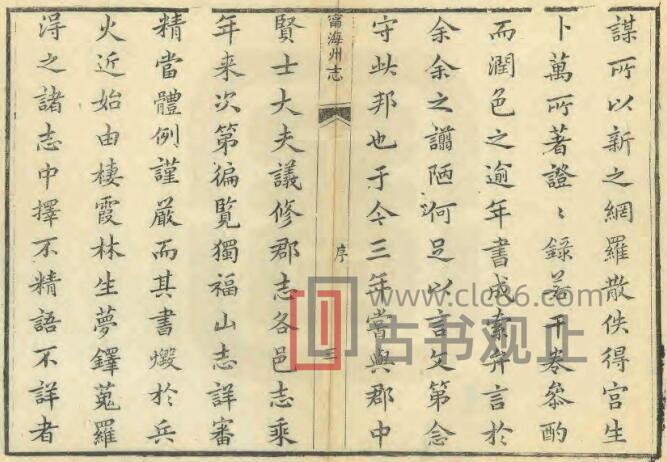 謀所以新之網羅散佚得宫生
卜萬所著證〻錄若干卷叅酌
而潤色之逾年書成索弁言於
余余之譾陋何足以言文第念
守此邦也于今三年嘗與郡中
甯海州志
序
三
賢士大夫議修郡志各邑志乘
年来次第徧覧獨福山志詳審
精當體例謹嚴而其書燬於兵
火近始由棲霞林生夢鐸蒐羅
淂之諸志中擇不精語不詳者
www.clc86.com
古书观止